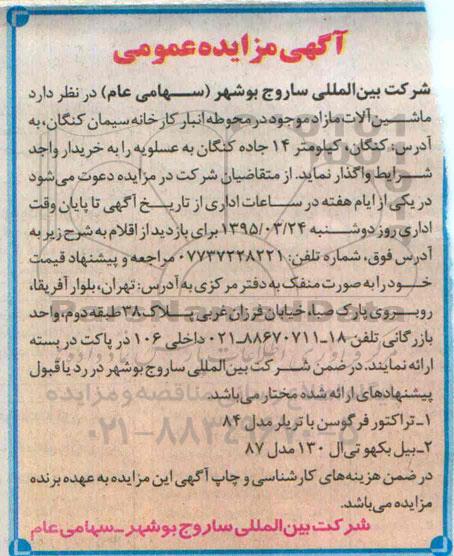 آگهی مزایده عمومی
شرکت بین‌المللی ساروج بوشهر (سهامی عام) در نظر دارد
ماشین‌آلات مازاد موجود در محوطه انبار کارخانه سیمان کنگان، به
آدرس: کنگان، کیلومتر ۱۴ جاده کنگان به عسلویه را به خریدار واجد
شرایط واگذار نماید. از متقاضیان شرکت در مزایده دعوت می‌شود
در یکی از ایام هفته در ساعات اداری از تاریخ آگهی تا پایان وقت
اداری روز دوشنبه ۱۳۹۵/۰۳/۲۴ برای بازدید از اقلام به شرح زیر به
آدرس فوق، شماره تلفن: ۰۷۷۳۷۲۲۸۲۲۱ مراجعه و پیشنهاد قیمت
خود را به صورت منفک به دفتر مرکزی به آدرس: تهران، بلوار آفریقا،
روبروی پارک صبا، خیابان فرزان غربی پلاک ۳۸ طبقه دوم، واحد
بازرگانی تلفن ۱۸-۸۸۶۷۰۷۱۱-۰۲۱ داخلی ۱۰۶ در پاکت در بسته
ارائه نمایند. در ضمن شرکت بین‌المللی ساروج بوشهر در رد یا قبول
پیشنهادهای ارائه شده مختار می‌باشد.
۱-تراکتور فرگوسن با تریلر مدل ۸۴
۲-بیل بکهو تی‌ال ۱۳۰ مدل ۸۷
در ضمن هزینه‌های کارشناسی و چاپ آگهی این مزایده به عهده برنده
مزایده می‌باشد.
شرکت بین‌المللی ساروج بوشهر-سهامی عام